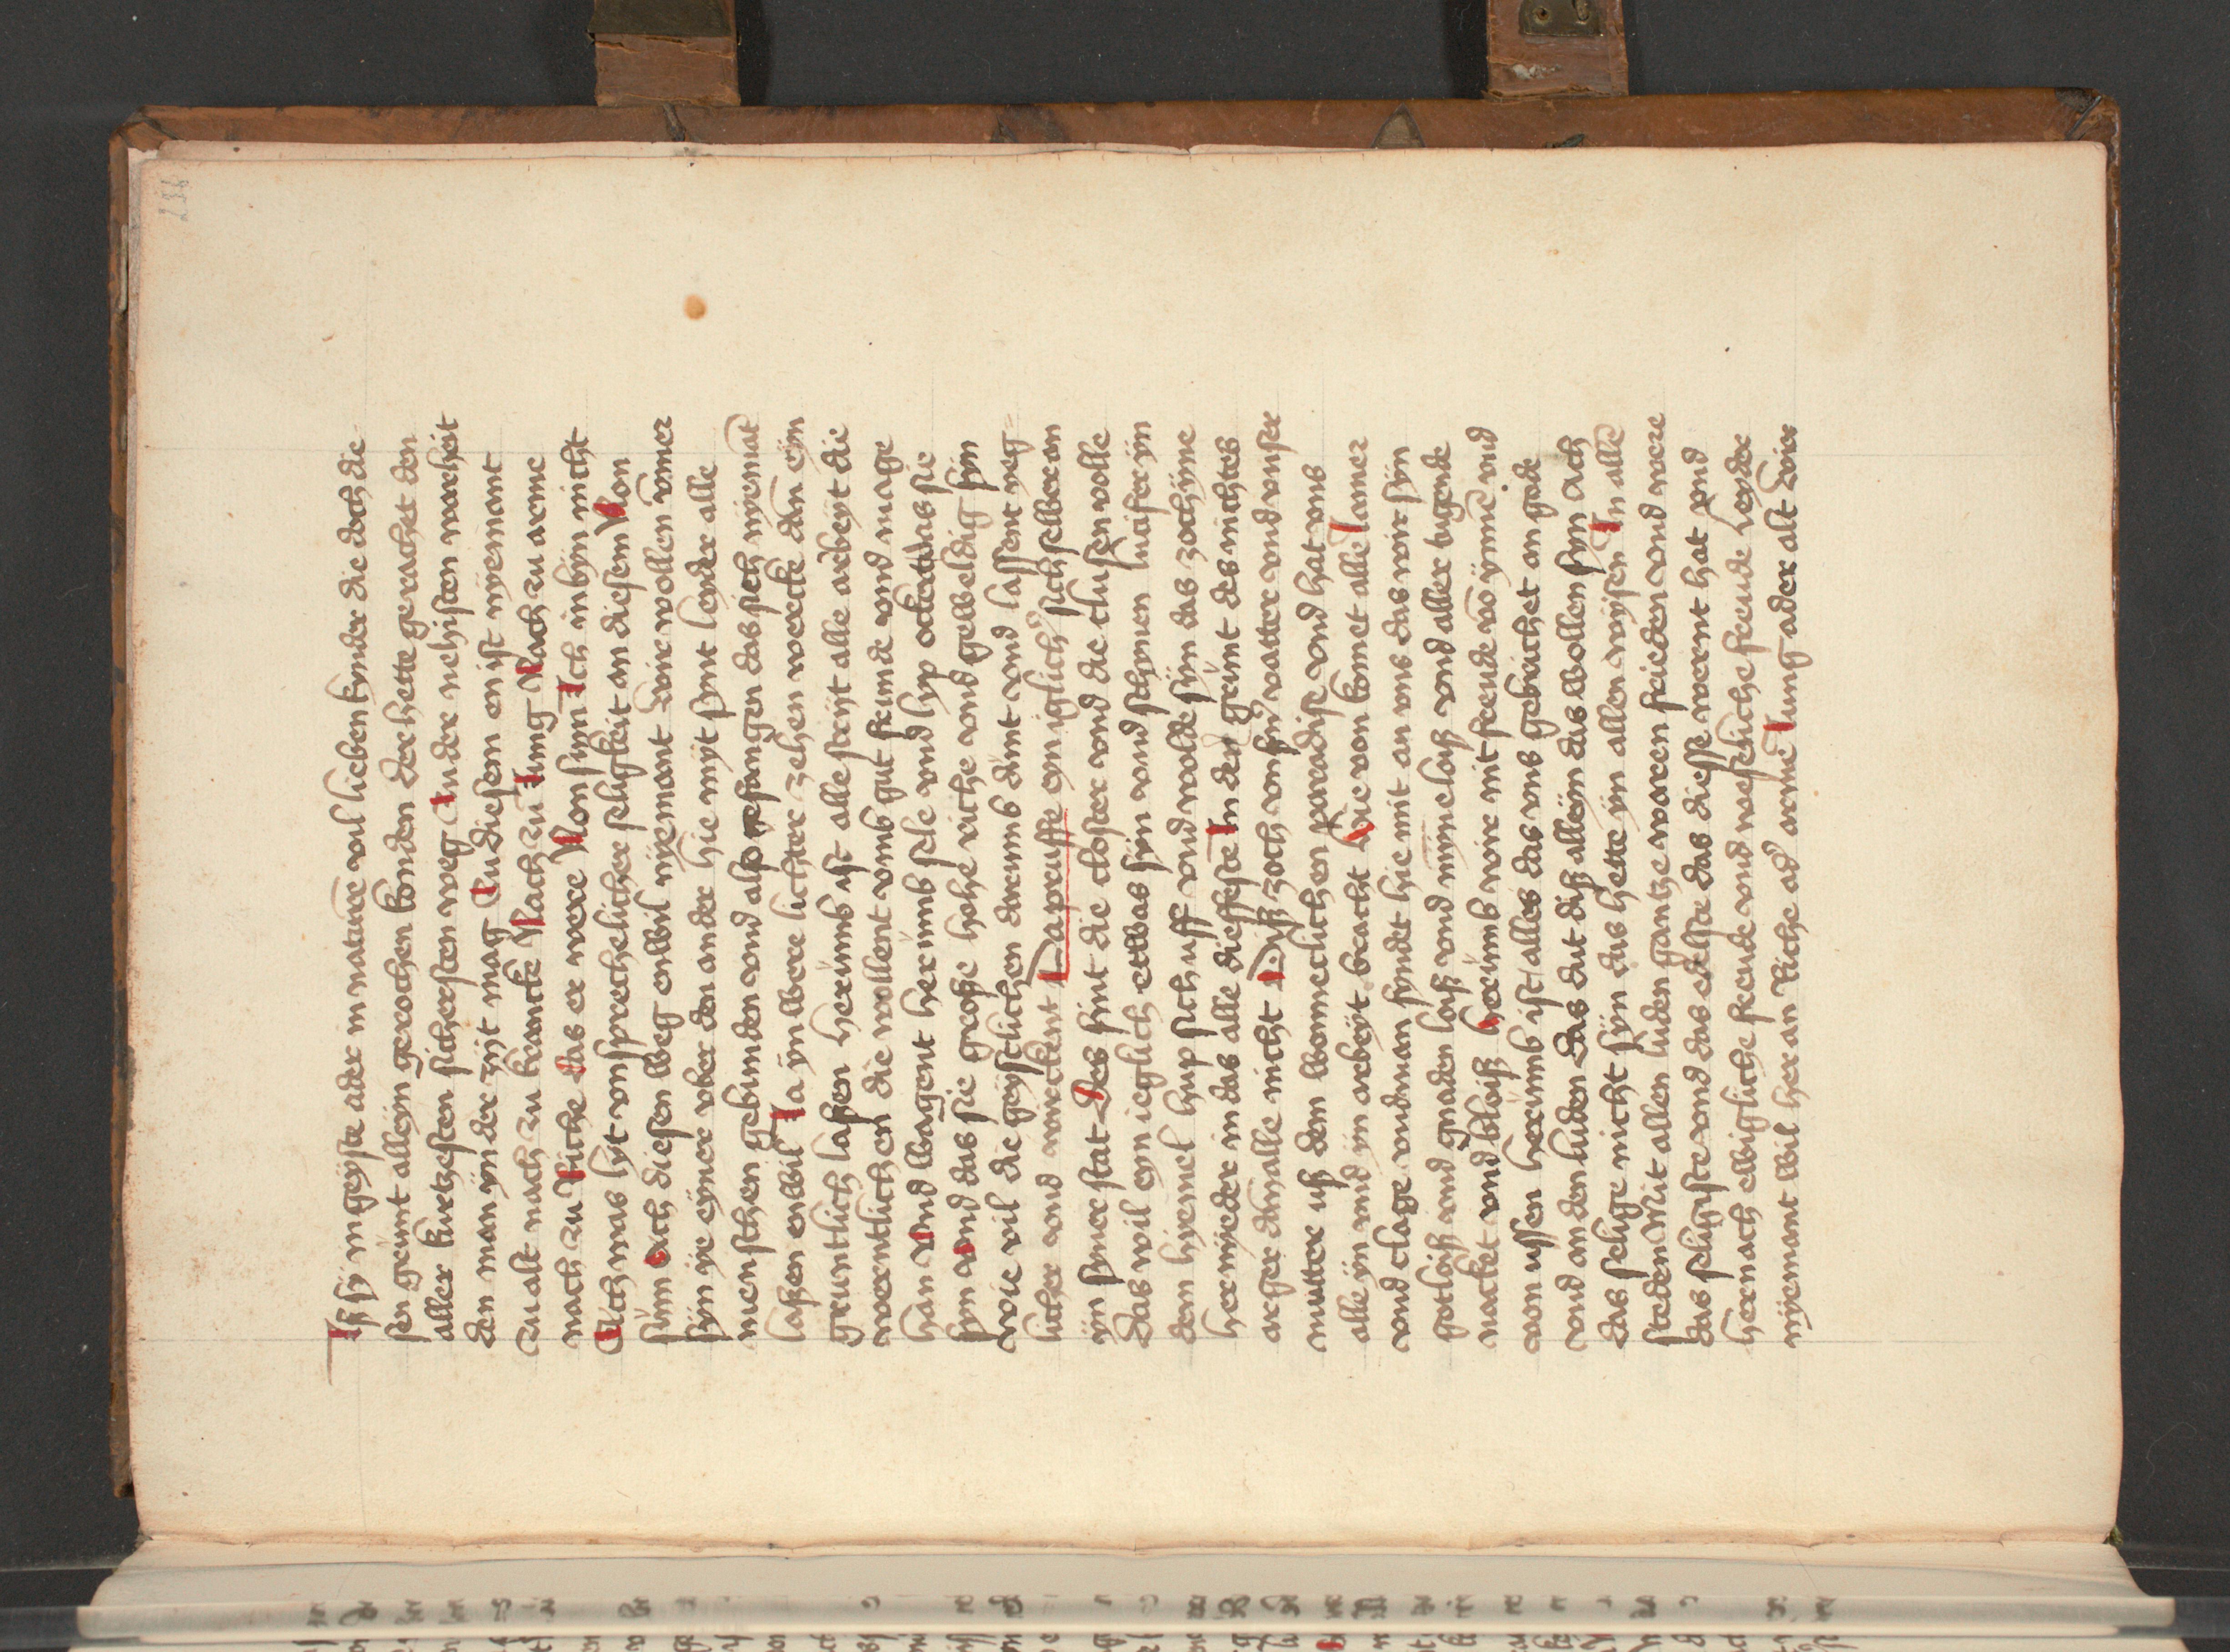 137
Iß sÿ in geÿste ader in nature vil lieben kynder die doch die
sen grunt alleÿn gerochen konden Der hette gerachet den
aller kurtzesten sichersten weg Inder nehisten warheit
den man ÿn der zijt mag Zu diesem en ist nyemant
zu alt nach zu krancke Nach zu Jung Nach zu arme
nach zu Riche das er were Non sum Ich in bÿn nicht
Ach was lyt vnsprechelicher selikeit an diesem Non
sum Ach diesen weg enwil nÿemant wir wollen vmer
sÿn ÿe eÿner vber den ander Hie mÿt synt leyder alle
menschen gebunden vnd also gefangen das sich nyemant
laßen enwil Ja ÿm were lichter zehen wercke dan eÿn
gruntlich laßen Herumb ist alle strijt alle arbeÿt die
werntlichen die wollent vmb gut frunde vnd mage
han Vnd wagent herumb sele vnd lyp ockert das sie
syn vnd das sie große hohe riche vnd geweldig sÿn
wie vil die geÿstlichen darumb dunt vnd lassent yeg
licher vnd wirckent Da pruffe eyn iglich sich selber an
ÿn syner stat Des sint die closter vnd die clusen volle
Das wil eyn ieglich ettwas sÿn vnd schynen lucifer ÿn
dem hyemel hup sich uff vnd wolde sÿn das zoch yme
her nÿeder in das alle dieffeste In den grunt des nichtes
arger dan alle nicht Diß zoch vnsern vatter vnd vnser
mutter uß dem wonneclichen paradise vnd hat vns
alle ÿn vnd ÿn arbeÿt bracht Hie von komet alle Jamer
vnd clage vnd man fyndet hie mit an vns das wir sÿn
gotloiß vnd gnaden loiß vnd mÿnneloiß vnd aller tugende
nacket vnd bloiß Herumb wir nit freude vō ÿnne vnd
von ussen herumb ist alles das vns gebrichet an gode
vnd an den luden Das dut diß alleÿn das wollen syn Ach
das selige nicht sÿn das hette ÿn allen wÿsen In alle
steden Mit allen luden gantze waren frieden vnd were
das seligiste vnd das edelste das diesse wernt hat vnd
hernach ewigliche freude vnd weseliche freude Leyder
nÿemant wil her an Riche ad' arme Jung ader alt Wir